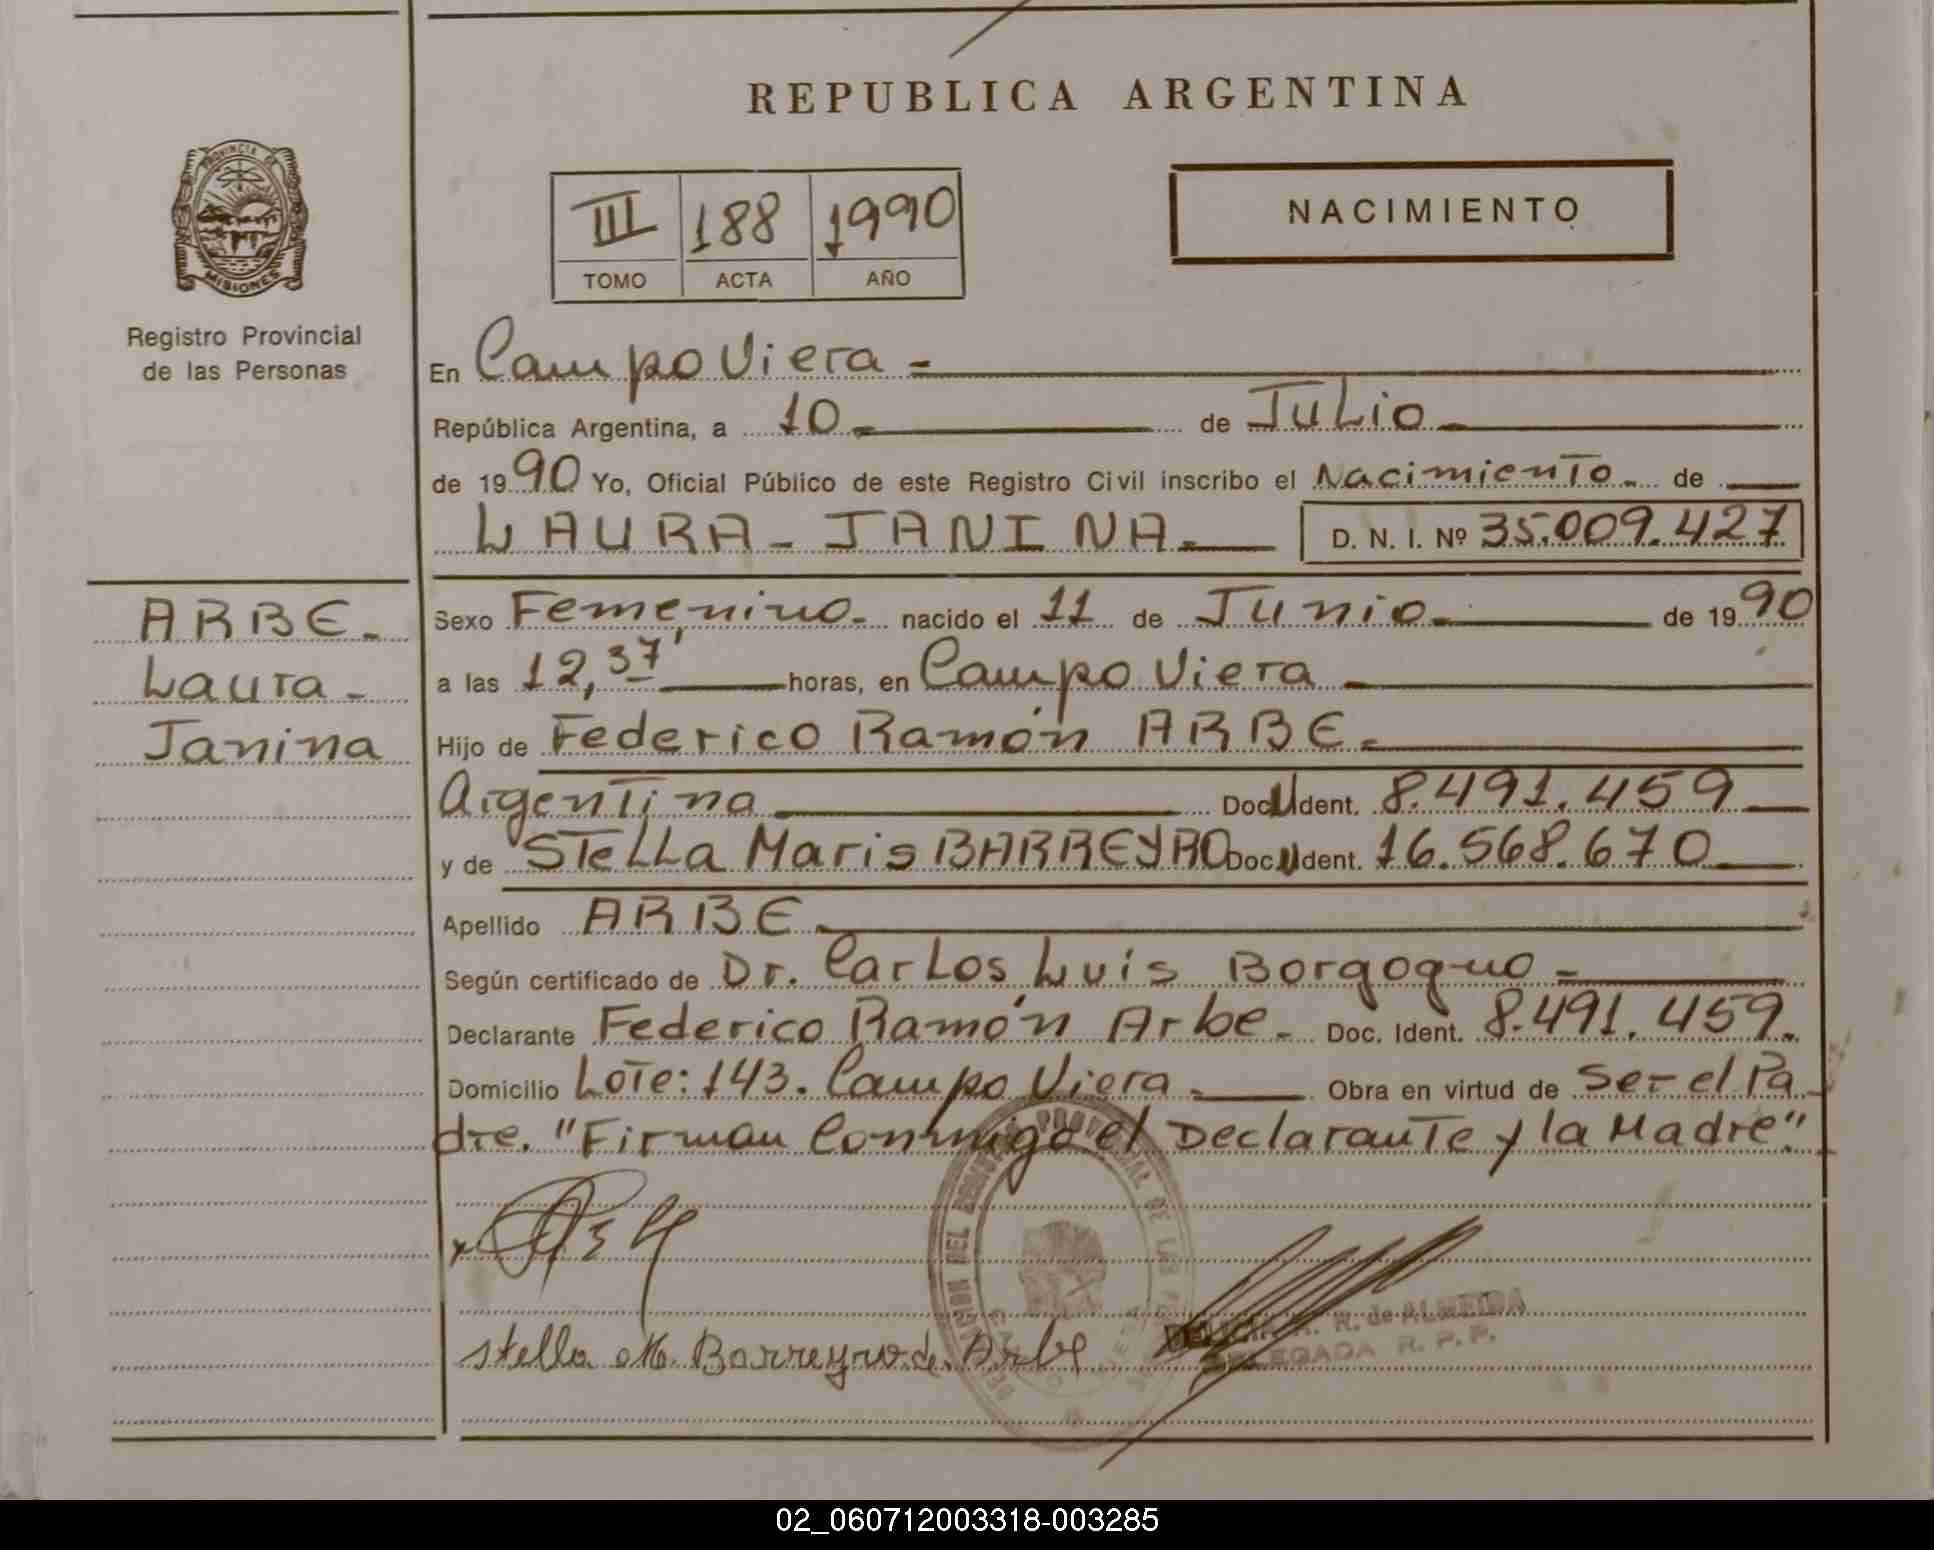 REPUBLICA ARGENTINA
PROVINCIA DE
MISIONES
Registro Provincial
de las Personas
III 188 1990
TOMO ACTA AÑO
NACIMIENTO
En Campo Viera -
República Argentina, a 10 - de Julio -
de 1990 Yo, Oficial Público de este Registro Civil inscribo el Nacimiento - de
LAURA - JANINA - D. N. I. Nº 35.009.427
ARBE -
Laura -
Janina
Sexo Femenino - nacido el 11 de Junio - de 1990
a las 12,37' horas, en Campo Viera -
Hijo de Federico Ramón ARBE -
Argentina Doc. Ident. 8.491.459
y de Stella Maris BARREYRO Doc. Ident. 16.568.670
Apellido ARBE
Según certificado de Dr. Carlos Luis Borgogno -
Declarante Federico Ramón Arbe - Doc. Ident. 8.491.459.
Domicilio Lote: 143. Campo Viera - Obra en virtud de Ser el Pa-
dre. "Firman Conmigo el Declarante y la Madre".
Stella M. Barreyro de Arbe
R. de ALMEIDA
DELEGADA R. P. P.
02_060712003318-003285